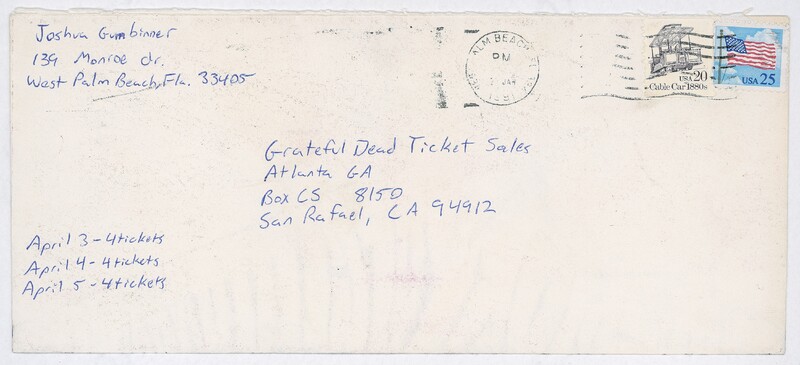 Joshua Gumbinner
139 Monroe dr.
West Palm Beach, Fla. 33405
PALM BEACH
PM
JAN
USA 20
Cable Car 1880s
USA 25
Grateful Dead Ticket Sales
Atlanta GA
Box CS 8150
San Rafael, CA 94912
April 3 - 4 tickets
April 4 - 4 tickets
April 5 - 4 tickets